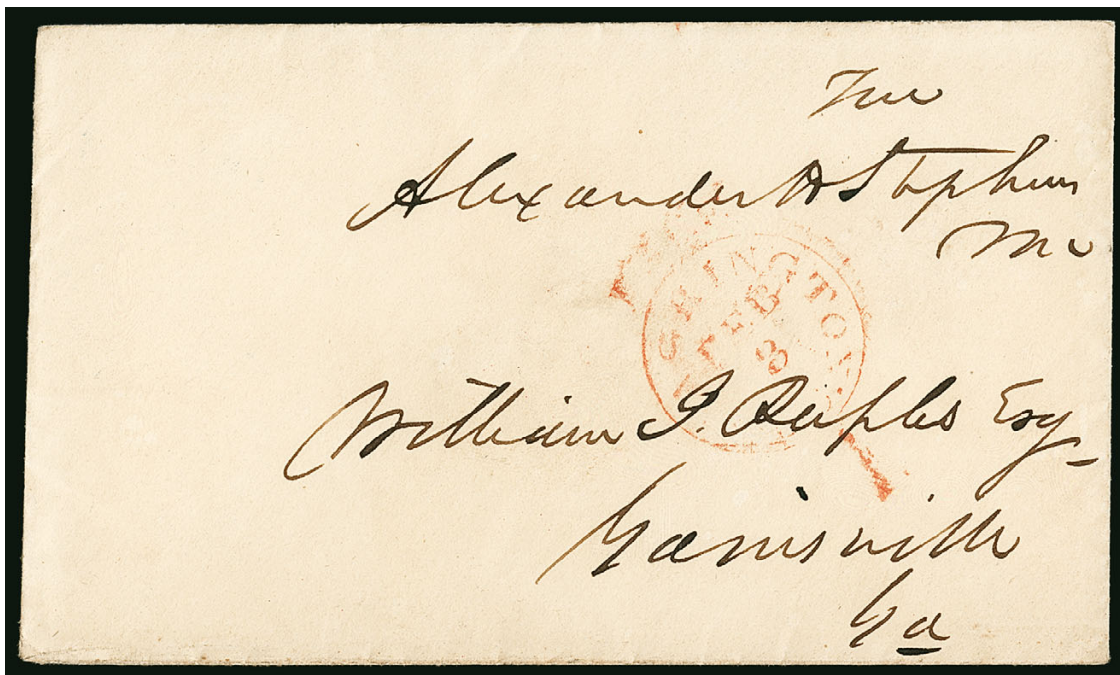 Free
Alexander H Stephens
M C
WASHINGTON
FEB
3
William J. Peeples Esq
Gainsville
Ga